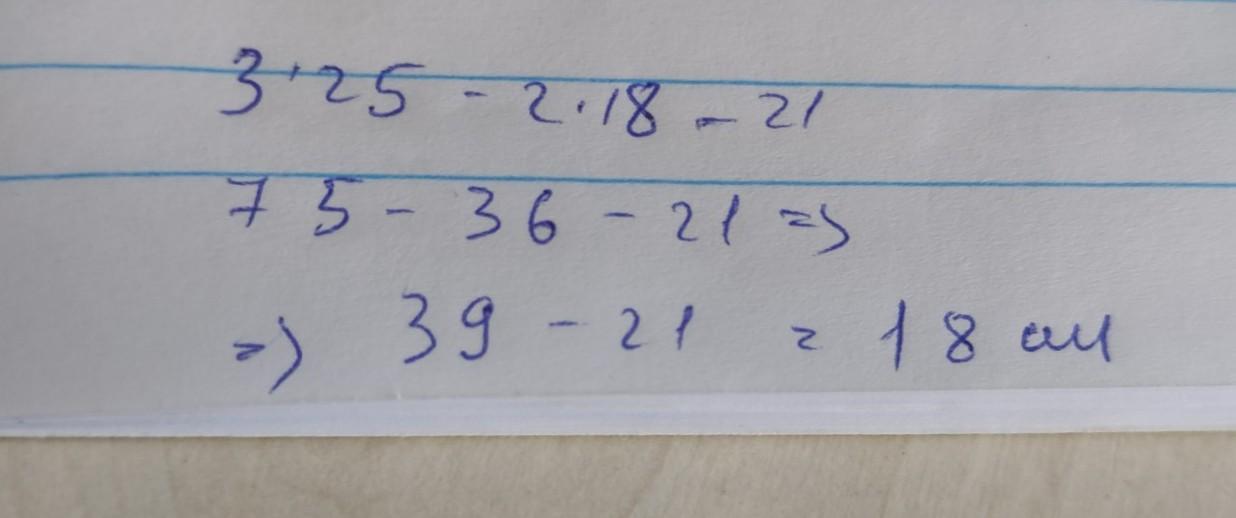 3·25 - 2·18 - 21
75 - 36 - 21 =>
=> 39 - 21 = 18 см